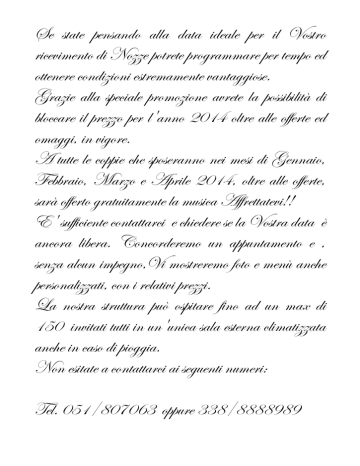 Se state pensando alla data ideale per il Vostro
ricevimento di Nozze potrete programmare per tempo ed
ottenere condizioni estremamente vantaggiose.
Grazie alla speciale promozione avrete la possibilità di
bloccare il prezzo per l'anno 2014 oltre alle offerte ed
omaggi, in vigore.
A tutte le coppie che sposeranno nei mesi di Gennaio,
Febbraio, Marzo e Aprile 2014, oltre alle offerte,
sarà offerto gratuitamente la musica Affrettatevi!!
E' sufficiente contattarci e chiedere se la Vostra data è
ancora libera. Concorderemo un appuntamento e ,
senza alcun impegno, Vi mostreremo foto e menù anche
personalizzati, con i relativi prezzi.
La nostra struttura può ospitare fino ad un max di
150 invitati tutti in un'unica sala esterna climatizzata
anche in caso di pioggia.
Non esitate a contattarci ai seguenti numeri:
Tel. 051/807063 oppure 338/8888989